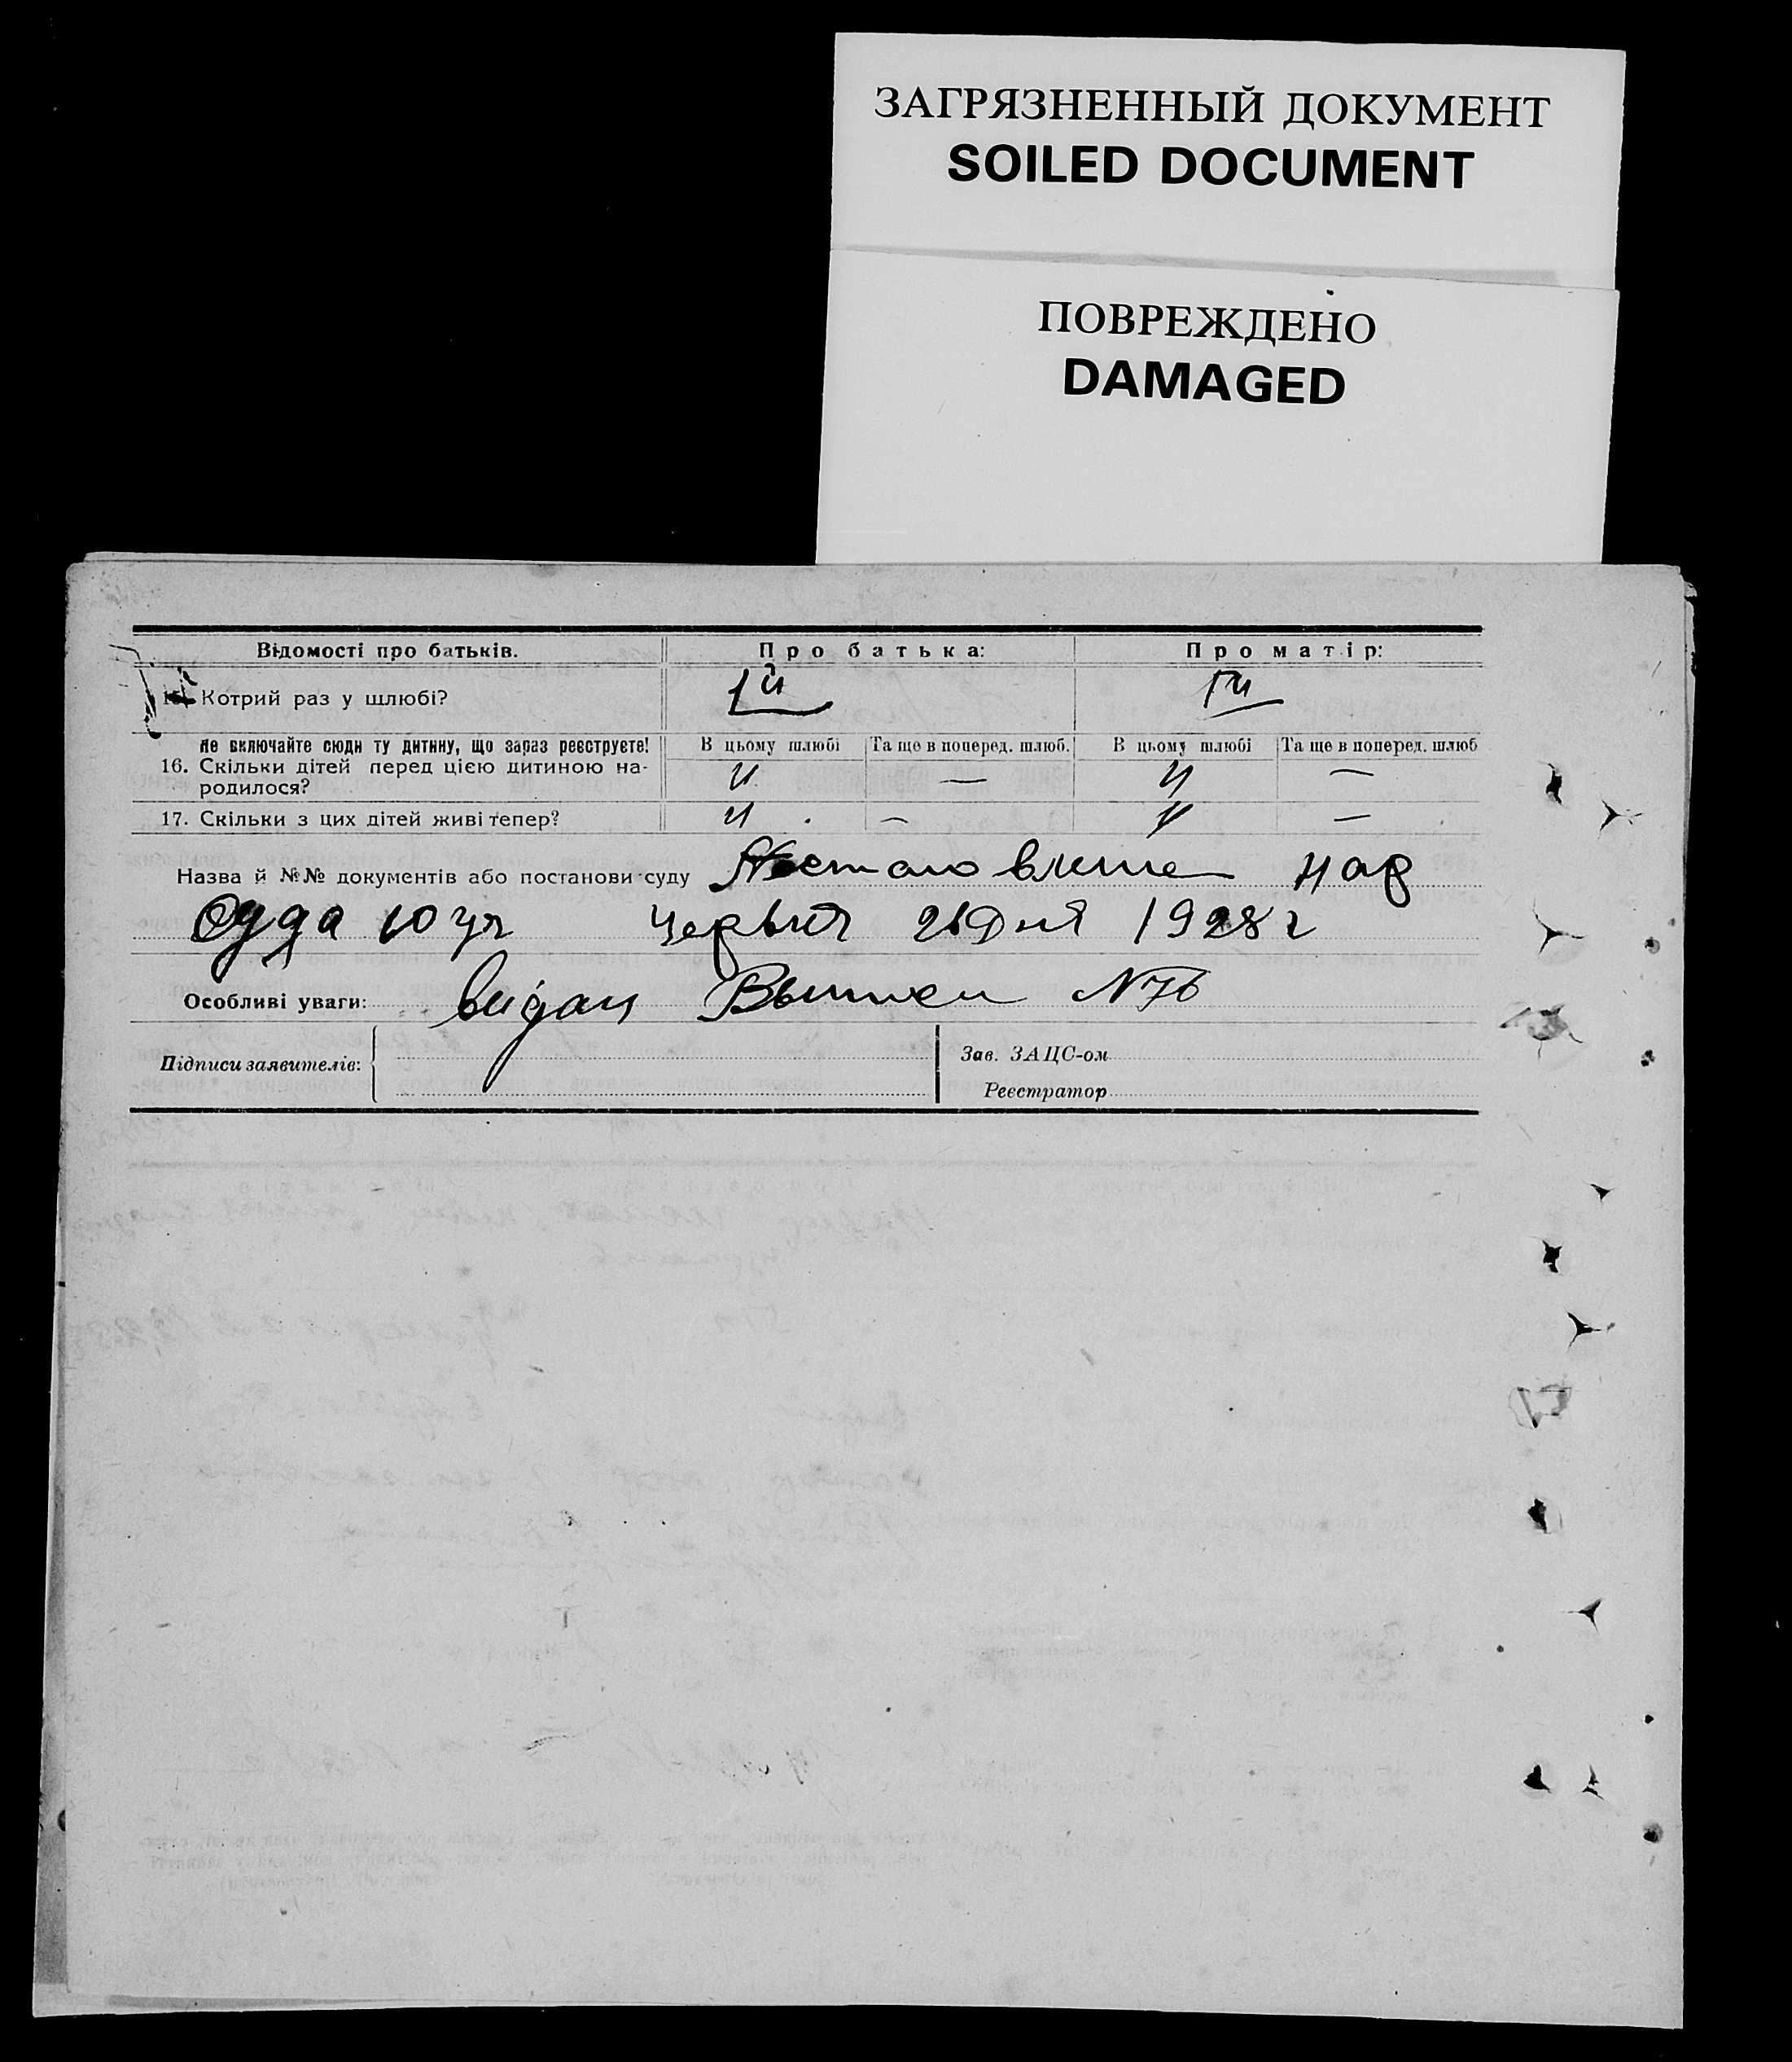 ЗАГРЯЗНЕННЫЙ ДОКУМЕНТ
SOILED DOCUMENT
ПОВРЕЖДЕНО
DAMAGED
Відомості про батьків. Про батька: Про матір:
15. Котрий раз у шлюбі? 1й 1й
Не включайте сюди ту дитину, що зараз реєструєте! В цьому шлюбі Та ще в поперед. шлюб. В цьому шлюбі Та ще в поперед. шлюб
16. Скільки дітей перед цією дитиною на- 4 — 4 —
родилося?
17. Скільки з цих дітей живі тепер? 4 — 4 —
Назва й №№ документів або постанови суду Нар
Суда 10 уч 21 дня 1928 г
Особливі уваги: видан N 76
Підписи заявителів: Зав. ЗАЦС-ом
Реєстратор